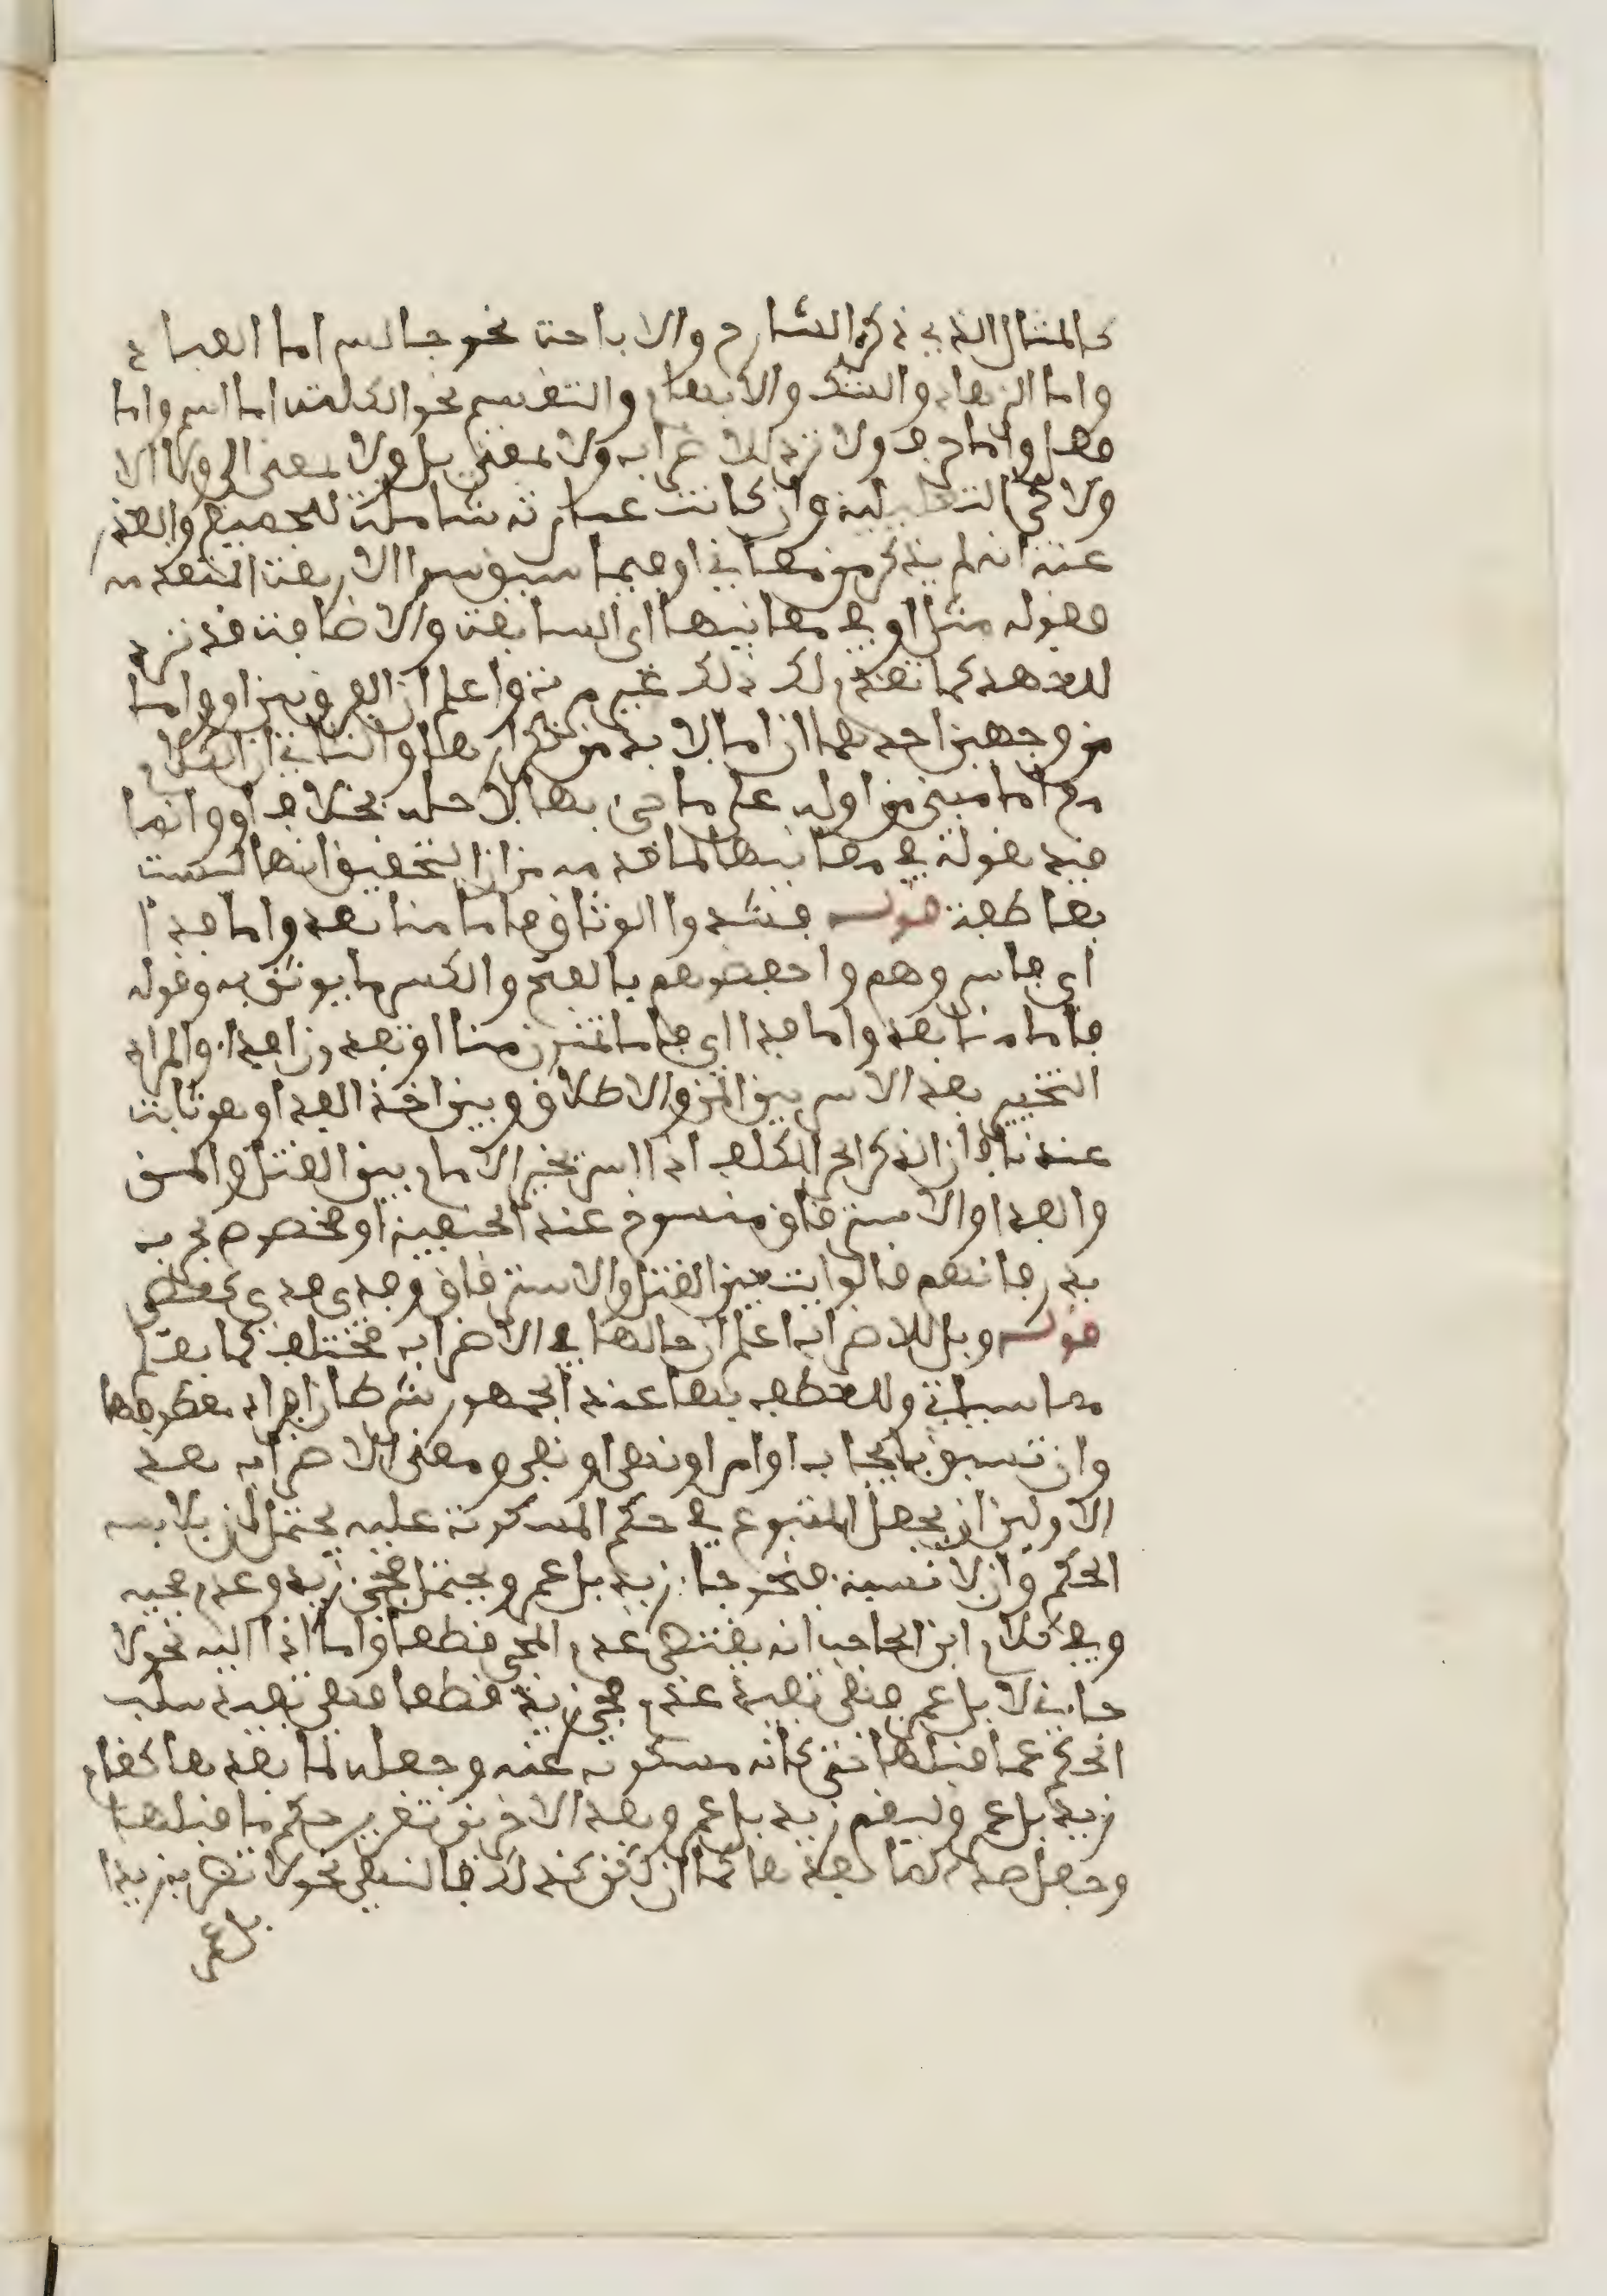 كالمثال الذي ذكره الشارح والاباحة نحو جالس اما العباد
واما الزهاد والشك والابهام والتقسيم نحو الكلمة اما اسم واما
فعل واما حرف ولا ترد للاضراب ولا بمعنى بل ولا بمعنى الى ولا الا
ولا كي التعليلية وان كانت عبارته شاملة للجميع والعذر
عنه انه لم يذكر من معاني او فيما سبق سوى الاربعة المتقدمة
فقوله مثل او في معانيها اي السابقة والاضافة قد ترد
للعهد كما تقدم لك ذلك غير مرة واعلم ان الفرق بين او واما
من وجهين احدهما ان اما لا بد من تكرارها والثاني ان الكلام
مع اما مبني من اوله على ما جيء بها لاجله بخلاف او وانما
قيد بقوله في معانيها لما قدمه من ان التحقيق انها ليست
بعاطفة قوله فشدوا الوثاق فاما منا بعد واما فداء
اي فاسروهم واحفضوهم بالفتح والكسر ما يوثق به وقوله
فاما منا بعد واما فداء اي فاما تمنون منا او تفدون فداء والمراد
التخيير بعد الاسر بين المن والاطلاق وبين اخذ الفداء وهو ثابت
عندنا فان الذكر الحر المكلف اذا اسر تخير الامام بين القتل والمن
والفداء والاسترقاق منسوخ عند الحنفية او مخصوص بحرب
بدر فانهم قالوا بتعين القتل والاسترقاق وفدى هدي كعطى
قوله وبل للاضراب اعلم ان حالها في الاضراب مختلف كما يعلم
مما سياتي وللعطف بها عند الجمهور شرطان افراد معطوفها
وان تسبق بايجاب او امر او نهي او نفي ومعنى الاضراب بعد
الاولين ان يجعل المتبوع في حكم المسكوت عليه يحتمل ان يلابسه
الحكم وان لا نسبة فنحو جاء زيد بل عمرو يحتمل مجيء زيد وعدم مجيه
وفي كلام ابن الحاجب انه يقتضي عدم المجيء قطعا واما اذا اليه نحو لا
جاء زيد لا بل عمرو فنفى تفيد عدم مجيء زيد قطعا فنفى تفيد سلب
الحكم عما قبلها حتى كانه مسكوت عنه وجعله لما بعدها كقام
زيد بل عمرو وليقم زيد بل عمرو وبعد الاخرين تقرير حكم ما قبلها
وجعل ضده لما بعدها كما ان لكن كذلك فالنهي نحو لا تضرب زيدا
بل عمرا